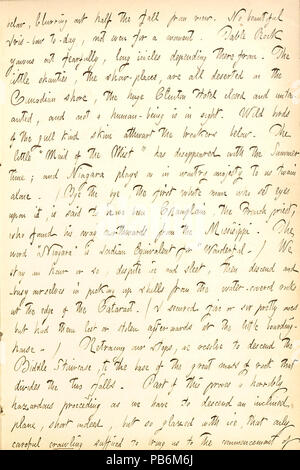 below, blurring out half the Fall from view. No beautiful
Iris-bow to-day, not even for a moment. Table Rock
yawns out fearfully, long icicles depending therefrom. The
little shanties, the show-places, are all deserted on the
Canadian shore, the huge Clifton Hotel closed and uninha-
bited, and not a human-being is in sight. Wild birds
of the gull kind skim athwart the breakers below. The
little "Maid of the Mist" has disappeared with the Summer
time; and Niagara plays on in wintry majesty to us twain
alone. (Bye the bye, the first white man who set eyes
upon it, is said to have been Champlain, the French priest
who found his way northwards from the Mississippi. The
word "Niagara" is Indian Equivalent for "Wonderful." / We
stay an hour or so, despite ice and sleet, then descend and
busy ourselves in picking up shells from the water-covered rocks
at the edge of the Cataract. (I secured five or six pretty ones
but had them lost or stolen afterwards at the boarding
house. / Retracing our steps, we resolve to descend the
Biddle Staircase, to the base of the great mass of rock that
divides the two falls. But it this proves a horribly
hazardous proceeding as we have to descend an inclined
plane, short indeed, but so glazed with ice, that only
careful crawling sufficed to bring us to the commencement of
alamy
Image ID: PB6M6J
www.alamy.com